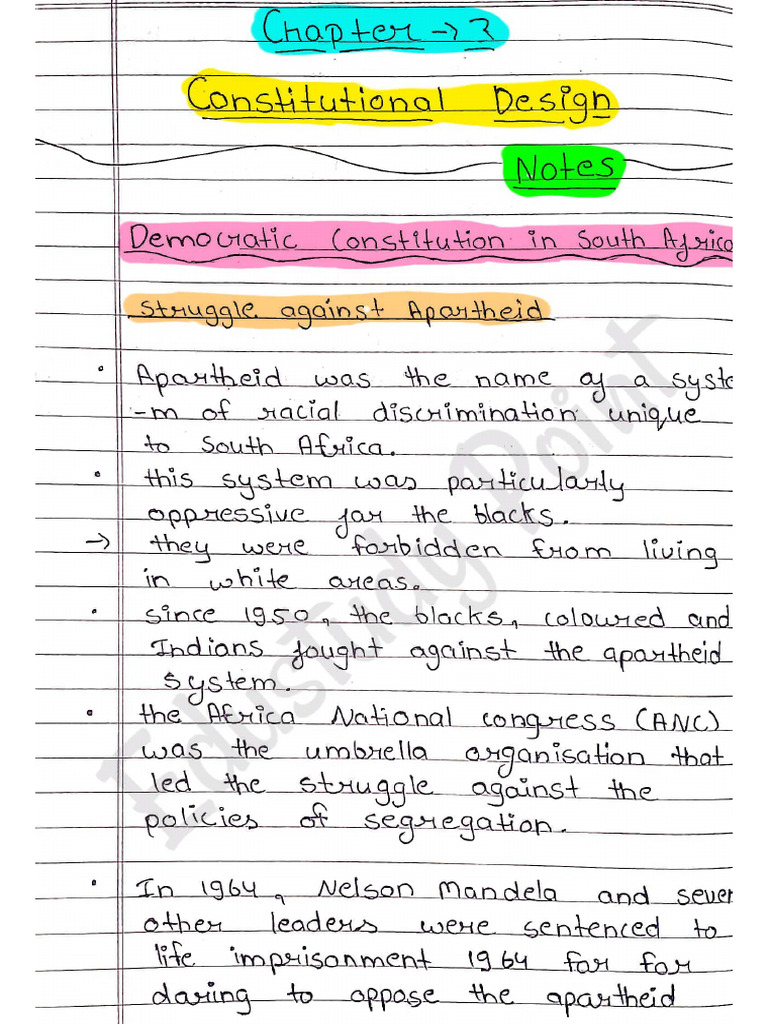 Chapter → 3
Constitutional Design
Notes
Democratic Constitution in South Africa
Struggle against Apartheid
• Apartheid was the name of a syste
-m of racial discrimination unique
to South Africa.
• this system was particularly
oppressive for the blacks.
→ they were forbidden from living
in white areas.
• since 1950, the blacks, coloured and
Indians fought against the apartheid
system.
• the Africa National congress (ANC)
was the umbrella organisation that
led the struggle against the
policies of segregation.
• In 1964, Nelson Mandela and sever
other leaders were sentenced to
life imprisonment 1964 for for
daring to oppose the apartheid
Edustudy Point